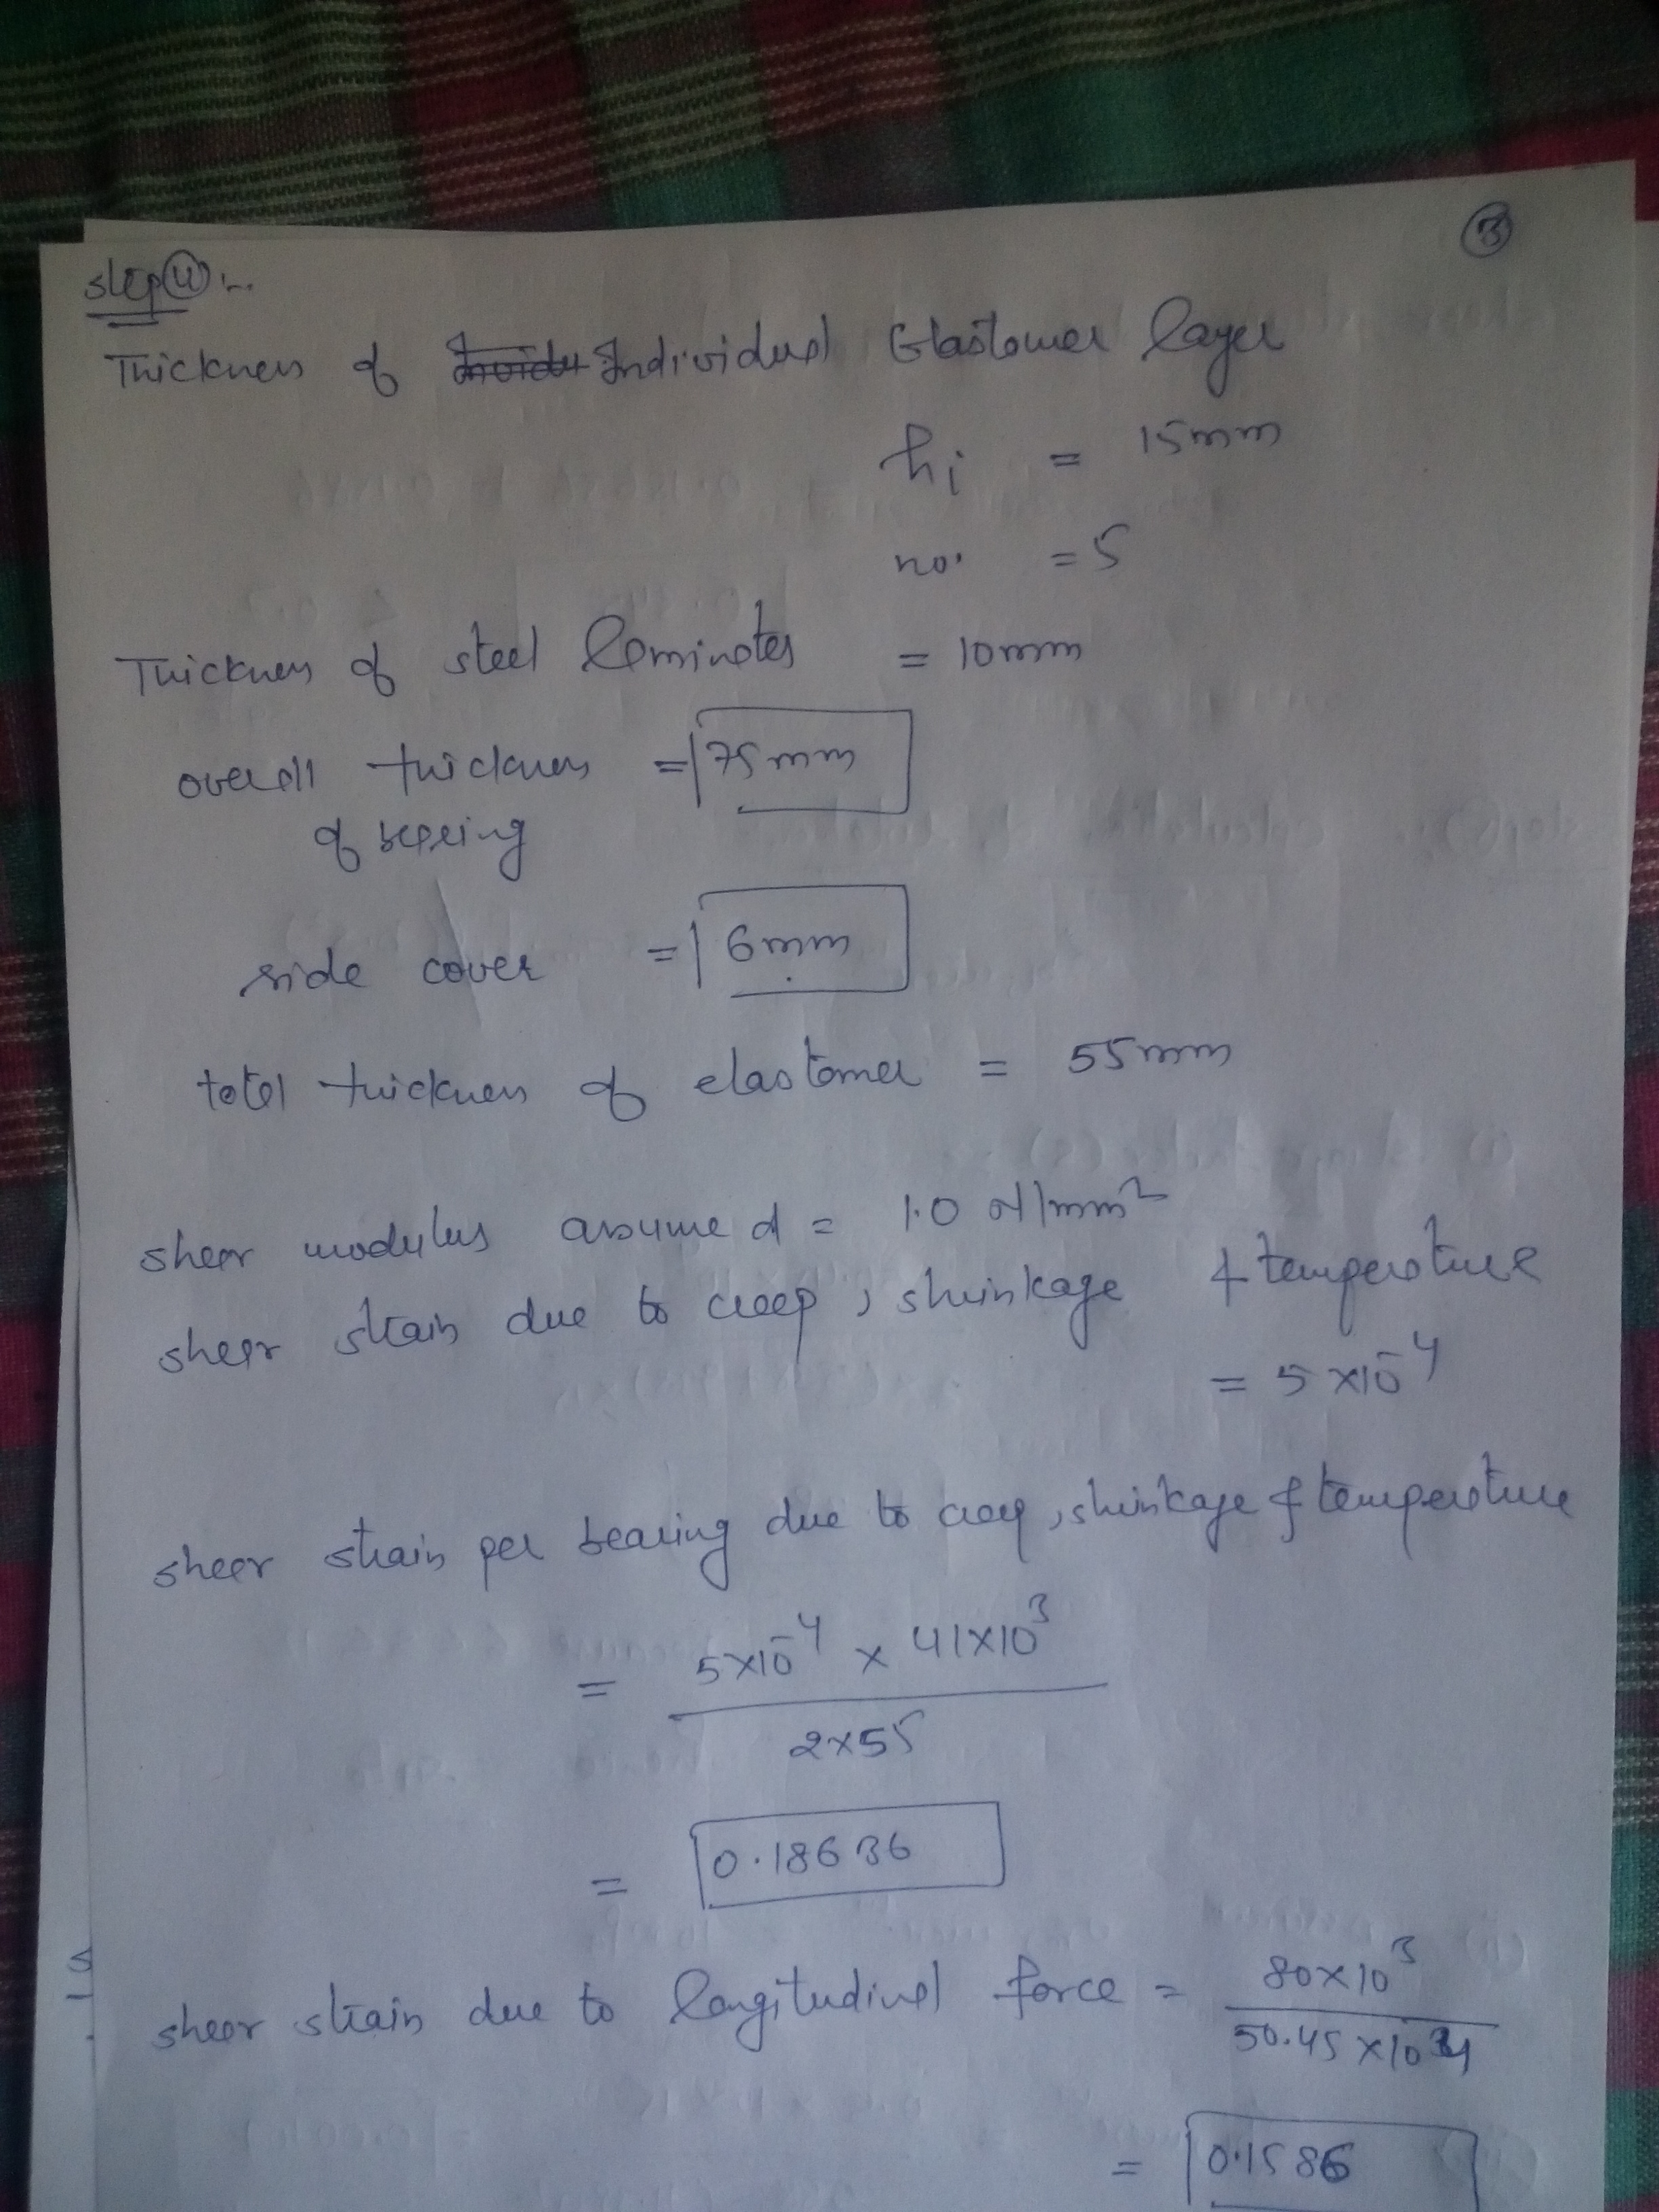 3
Step 4 :-
Thickness of Individual Elastomer layer
hi = 15mm
no. = 5
Thickness of steel laminates = 10mm
overall thickness = 75mm
of bearing
side cover = 6mm
total thickness of elastomer = 55mm
shear modulus assumed = 1.0 N/mm²
shear strain due to creep, shrinkage & temperature
= 5×10⁻⁴
shear strain per bearing due to creep, shrinkage & temperature
= 5×10⁻⁴ × 41×10³
2×55
= 0.18636
shear strain due to longitudinal force = 80×10³
50.45×10⁴
= 0.1586